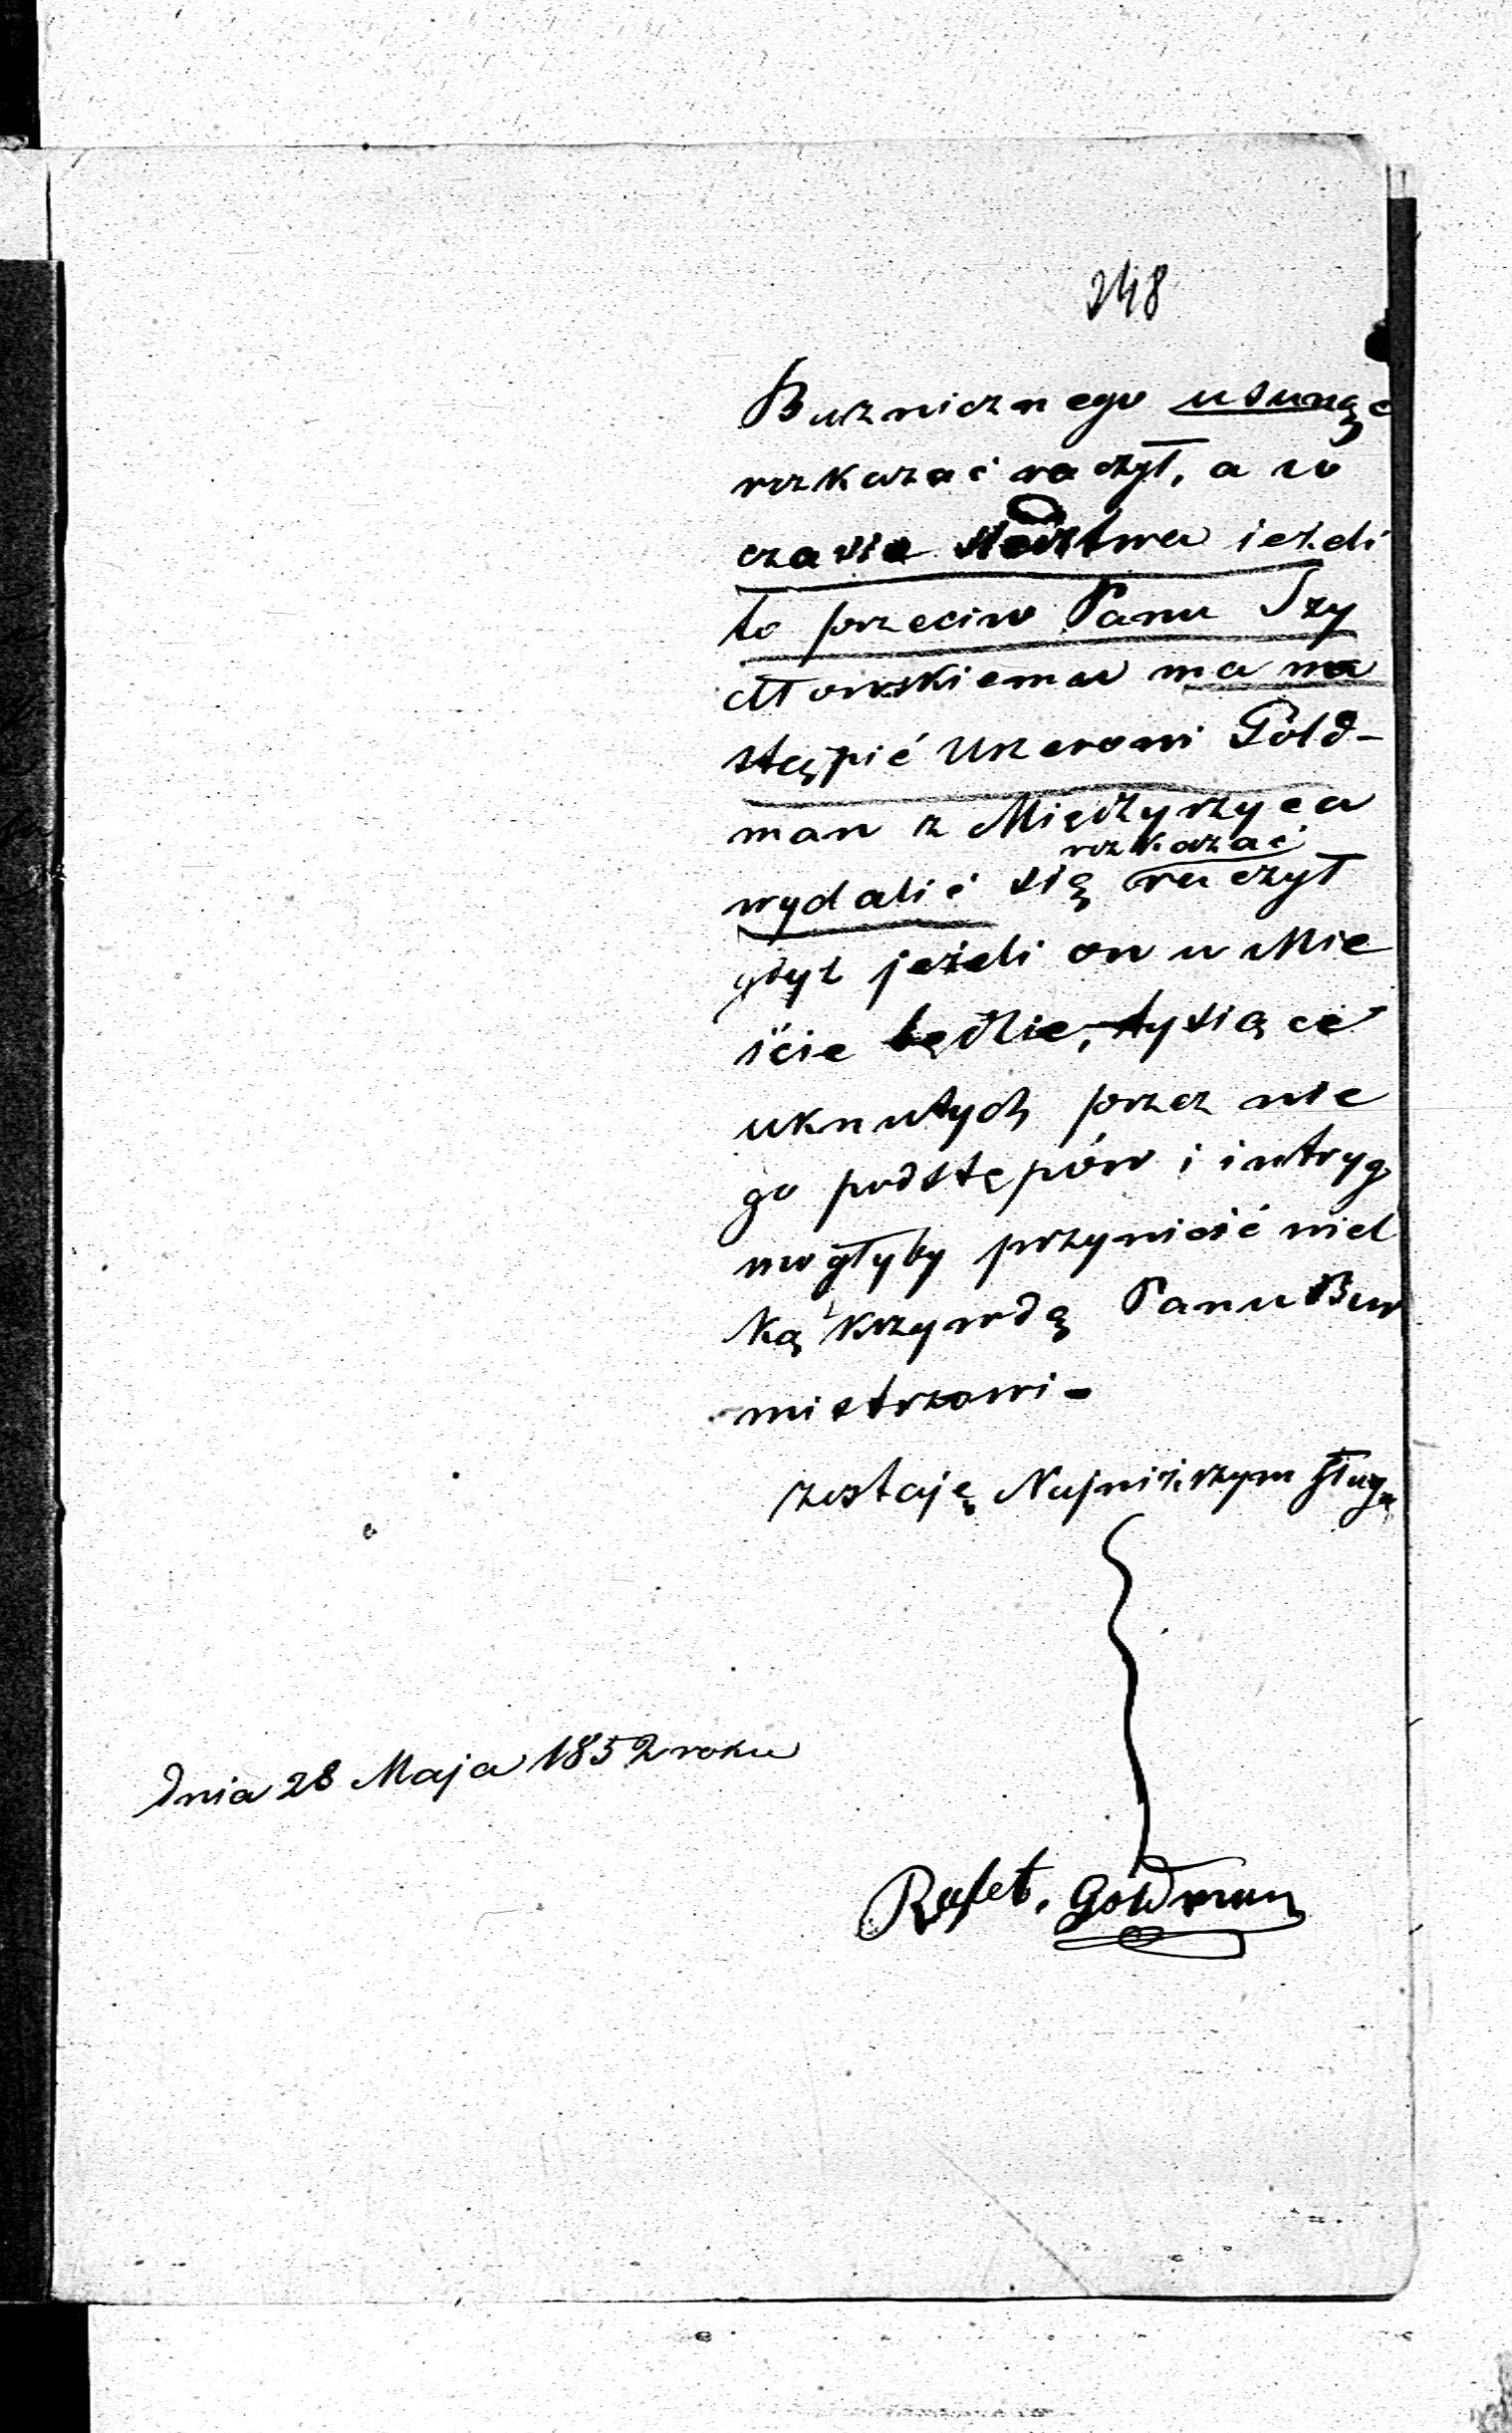 248
Buznicznego usunąć
rozkazać raczył, a w
czasie śledztwa ieżeli
to przeciw Panu Szy
dłowskiemu ma na
stąpić Uszerowi Gold-
man z Międzyrzyca
rozkazać
wydalić się raczył
gdyż jeżeli on w Mie
ście będzie, tysiące
uknutych przez nie
go podstępów i intryg
mogłyby przynieść wiel
ką krzywdą Panu Bur
mistrzowi -
zostaję Najniższym sługą
Dnia 28 Maja 1852 roku
Rafel. Goldman